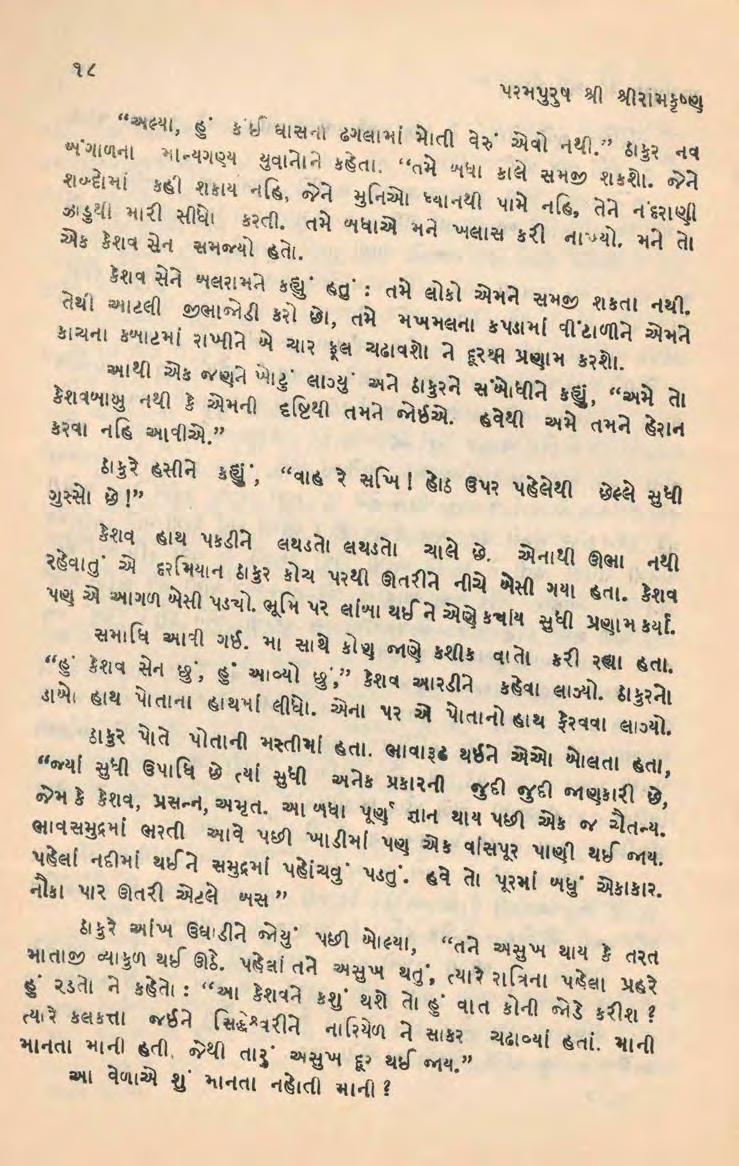 ૧૮
પરમપુરુષ શ્રી શ્રીરામકૃષ્ણ
“અલ્યા, હું કંઈ ઘાસના ઢગલામાં મોતી વેરું એવો નથી.” ઠાકુર નવ
બંગાળના માન્યગણ્ય યુવાનોને કહેતા. “તમે બધા કાલે સમજી શકશો. જેને
શબ્દોમાં કહી શકાય નહિ, જેને મુનિઓ ધ્યાનથી પામે નહિ, તેને નંદરાણી
ઝાડુથી મારી સીધો કરતી. તમે બધાએ મને ખલાસ કરી નાખ્યો. મને તો
એક કેશવ સેન સમજ્યો હતો.
કેશવ સેને બલરામને કહ્યું હતું : તમે લોકો એમને સમજી શકતા નથી.
તેથી આટલી જીભાજોડી કરો છો, તમે મખમલના કપડામાં વીંટાળીને એમને
કાચના કબાટમાં રાખીને બે ચાર ફૂલ ચઢાવશો ને દૂરથી પ્રણામ કરશો.
આથી એક જણને ખોટું લાગ્યું અને ઠાકુરને સંબોધીને કહ્યું, “અમે તો
કેશવબાબુ નથી કે એમની દૃષ્ટિથી તમને જોઈએ. હવેથી અમે તમને હેરાન
કરવા નહિ આવીએ.”
ઠાકુરે હસીને કહ્યું, “વાહ રે સખિ ! હોઠ ઉપર પહેલેથી છેલ્લે સુધી
ગુસ્સો છે !”
કેશવ હાથ પકડીને લથડતો લથડતો ચાલે છે. એનાથી ઊભા નથી
રહેવાતું એ દરમિયાન ઠાકુર કોચ પરથી ઊતરીને નીચે બેસી ગયા હતા. કેશવ
પણ એ આગળ બેસી પડયો. ભૂમિ પર લાંબા થઈ ને એણે કયાંય સુધી પ્રણામ કર્યાં.
સમાધિ આવી ગઈ. મા સાથે કોણ જાણે કશીક વાતો કરી રહ્યા હતા.
“હું કેશવ સેન છું, હું આવ્યો છું,” કેશવ આરડીને કહેવા લાગ્યો. ઠાકુરનો
ડાબો હાથ પોતાના હાથમાં લીધો. એના પર એ પોતાનો હાથ ફેરવવા લાગ્યો.
ઠાકુર પોતે પોતાની મસ્તીમાં હતા. ભાવારૂઢ થઈને એઓ બોલતા હતા,
“જ્યાં સુધી ઉપાધિ છે ત્યાં સુધી અનેક પ્રકારની જુદી જુદી જાણકારી છે,
જેમ કે કેશવ, પ્રસન્ન, અમૃત. આ બધા પૂર્ણ જ્ઞાન થાય પછી એક જ ચૈતન્ય.
ભાવસમુદ્રમાં ભરતી આવે પછી ખાડીમાં પણ એક વાંસપૂર પાણી થઈ જાય.
પહેલાં નદીમાં થઈ ને સમુદ્રમાં પહોંચવું પડતું. હવે તો પૂરમાં બધું એકાકાર.
નૌકા પાર ઊતરી એટલે બસ”
ઠાકુરે આંખ ઉઘાડીને જોયું પછી બોલ્યા, “તને અસુખ થાય કે તરત
માતાજી વ્યાકુળ થઈ ઊઠે. પહેલાં તને અસુખ થતું, ત્યારે રાત્રિના પહેલા પ્રહરે
હું રડતો ને કહેતો : “આ કેશવને કશું થશે તો હું વાત કોની જોડે કરીશ ?
ત્યારે કલકત્તા જઈને સિદ્ધેશ્વરીને નારિયેળ ને સાકર ચઢાવ્યાં હતાં. માની
માનતા માની હતી, જેથી તારું અસુખ દૂર થઈ જાય.”
આ વેળાએ શું માનતા નહોતી માની ?